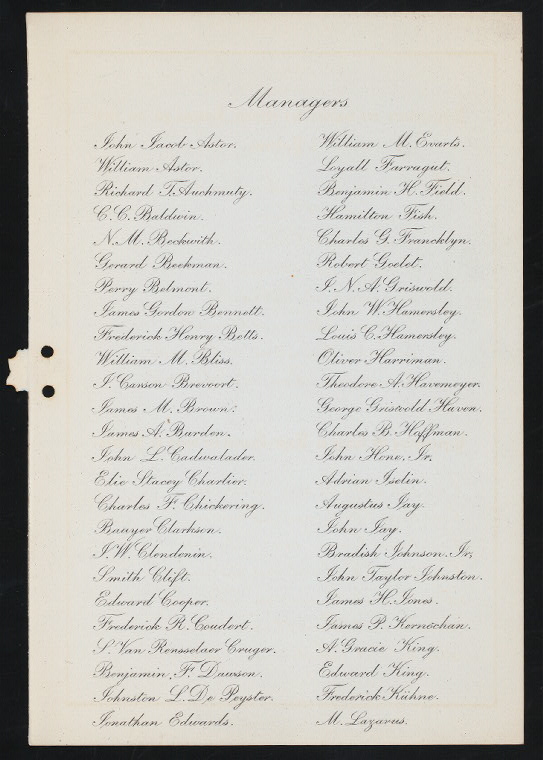 Managers
John Jacob Astor.
William Astor.
Richard T. Auchmuty.
C. C. Baldwin.
N. M. Beckwith.
Gerard Beekman.
Perry Belmont.
James Gordon Bennett.
Frederick Henry Betts.
William M. Bliss.
J. Carson Brevoort.
James M. Brown.
James A. Burden.
John L. Cadwalader.
Elie Stacey Charlier.
Charles F. Chickering.
Banyer Clarkson.
J. W. Clendenin.
Smith Clift.
Edward Cooper.
Frederick R. Coudert.
S. Van Rensselaer Cruger.
Benjamin F. Dawson.
Johnston L. De Peyster.
Jonathan Edwards.
William M. Evarts.
Loyall Farragut.
Benjamin H. Field.
Hamilton Fish.
Charles G. Francklyn.
Robert Goelet.
J. N. A. Griswold.
John W. Hamersley.
Louis C. Hamersley.
Oliver Harriman.
Theodore A. Havemeyer.
George Griswold Haven.
Charles B. Hoffman.
John Hone, Jr.
Adrian Iselin.
Augustus Jay.
John Jay.
Bradish Johnson, Jr,
John Taylor Johnston.
James H. Jones.
James P. Kernochan.
A. Gracie King.
Edward King.
Frederick Kühne.
M. Lazarus.